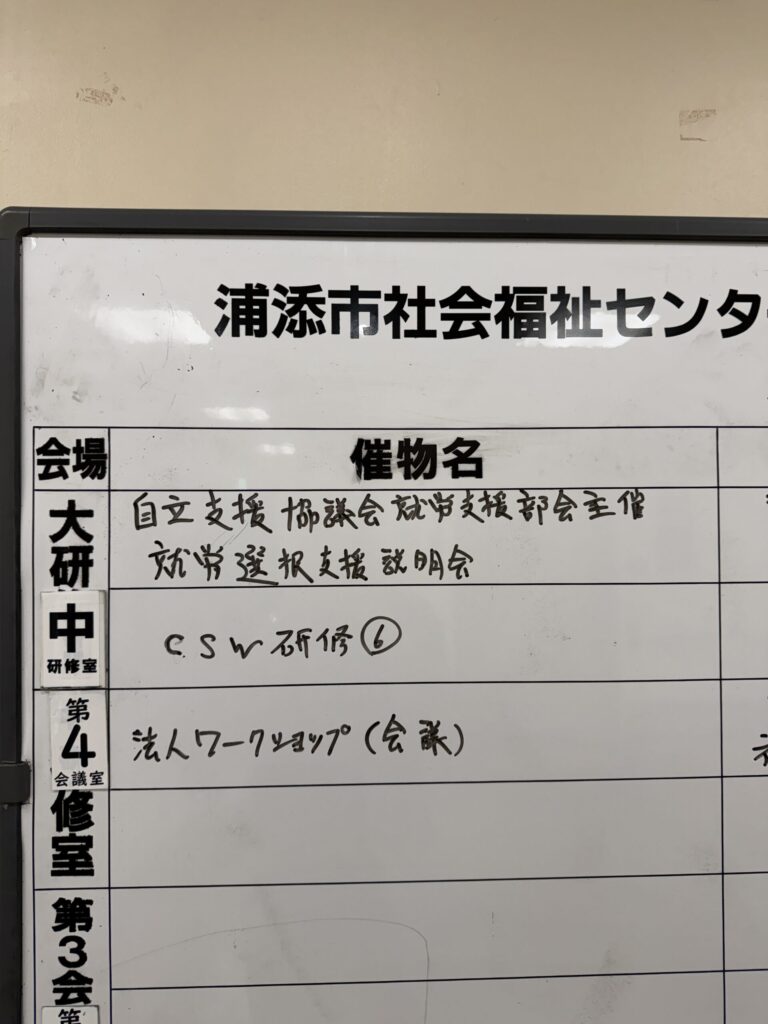 浦添市社会福祉センター
会場
催物名
大研
自立支援協議会就労支援部会主催
就労選択支援説明会
中
研修室
CSW研修⑥
第
4
会議室
法人ワークショップ(会議)
修室
第3会
第